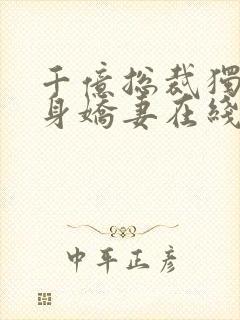 千億總裁獨
身嬌妻在綫
中平正彥